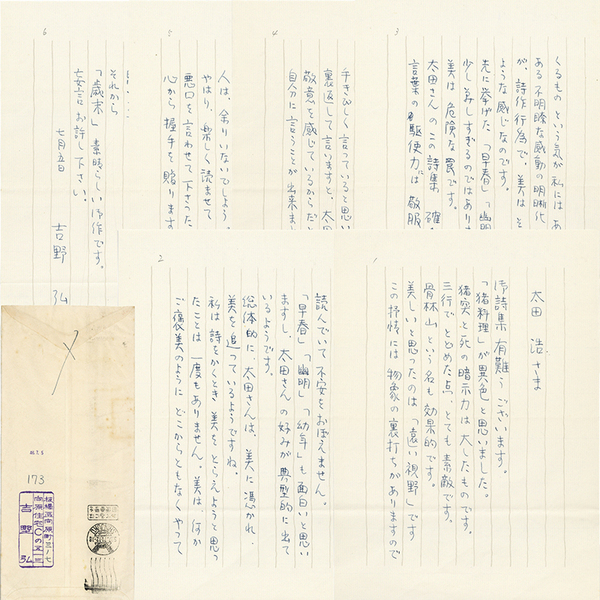 1
太田 浩さま
御詩集 有難うございます。
「猪料理」が異色と思いました。
三行でとどめた点、とても素敵です。
猪突と死の暗示力は大したものです。
骨林山という名も効果的です。
美しいと思ったのは「遠い視野」です
この抒情には物象の裏打ちがありますので
2
読んでいて不安をおぼえません。
「早春」「幽明」「幼年」も面白いと思い
ますし、太田さんの好みが典型的に出て
いるようです。
総体的に、太田さんは、美に憑かれ、
美を追っているようですね。
私は詩をかくとき、美をとらえようと思っ
たことは一度もありません。美は、何か
ご褒美のように どこからともなく やって
3
くるもの という気が私には あ
ある不明瞭な感動の明晰化
が、詩作行為で、美は と
ような感じなのです。
先に挙げた「早春」「幽明
少し美しすぎるのではあり
美は 危険な罠です。
太田さんのこの詩集、確
言葉の駆使力は 敬服
4
手きびしく言っていると思い
裏返して言いますと、太田
敬意を感じているからだ
自分に言うことが出来ま
5
人は、余りいないでしょう。
やはり、楽しく読ませて
悪口を言わせて下さった
心から 握手を 贈ります
6
それから
「歳末」素晴らしい御作です。
妄言お許し下さい。
七月五日
吉野 弘
173
吉野 弘